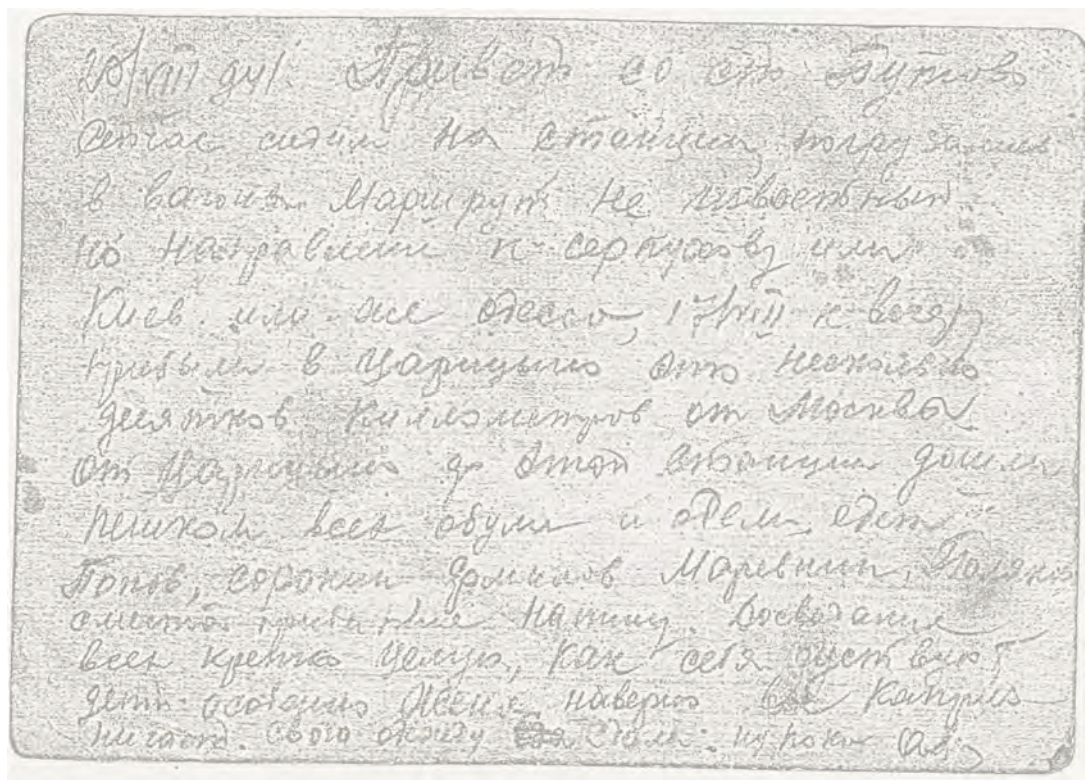 20/VIII 941. Привет со ст Бутово
сейчас сидим на станции, погрузились
в вагоны. Маршрут не известный
но направлении к серпухову или
Киев или же одесса, 17/VIII к вечеру
прибыли в Царицыно это несколько
десятков киллометров от Москвы
от Царицына до этой станции дошли
пешком всех обули и одели, едет
Попов, сорокин Маревнин,
Досведания
всех крепко целую, как себя чуствуют
дети особенно Женя наверно каприз
свою одежу ну пока